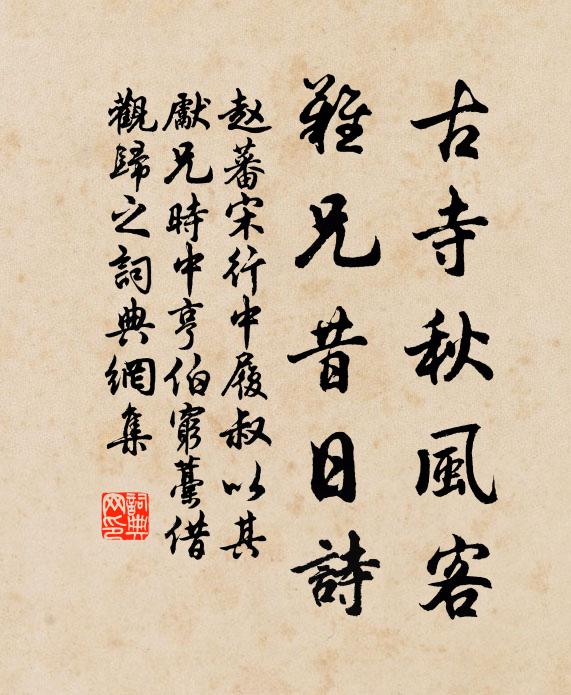 古寺秋風客
難兄昔日詩
赵蕃宋行中履叔以其
獻兄時中亨伯窮藁借
觀歸之詞典網集
詞典网印